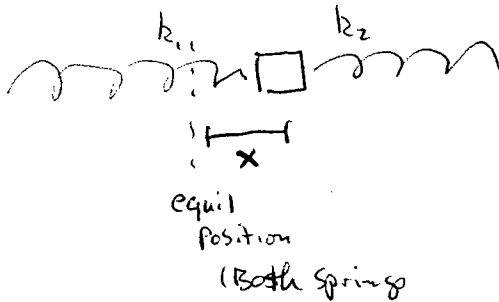 k₁ k₂
x
equil
Position
(Both springs